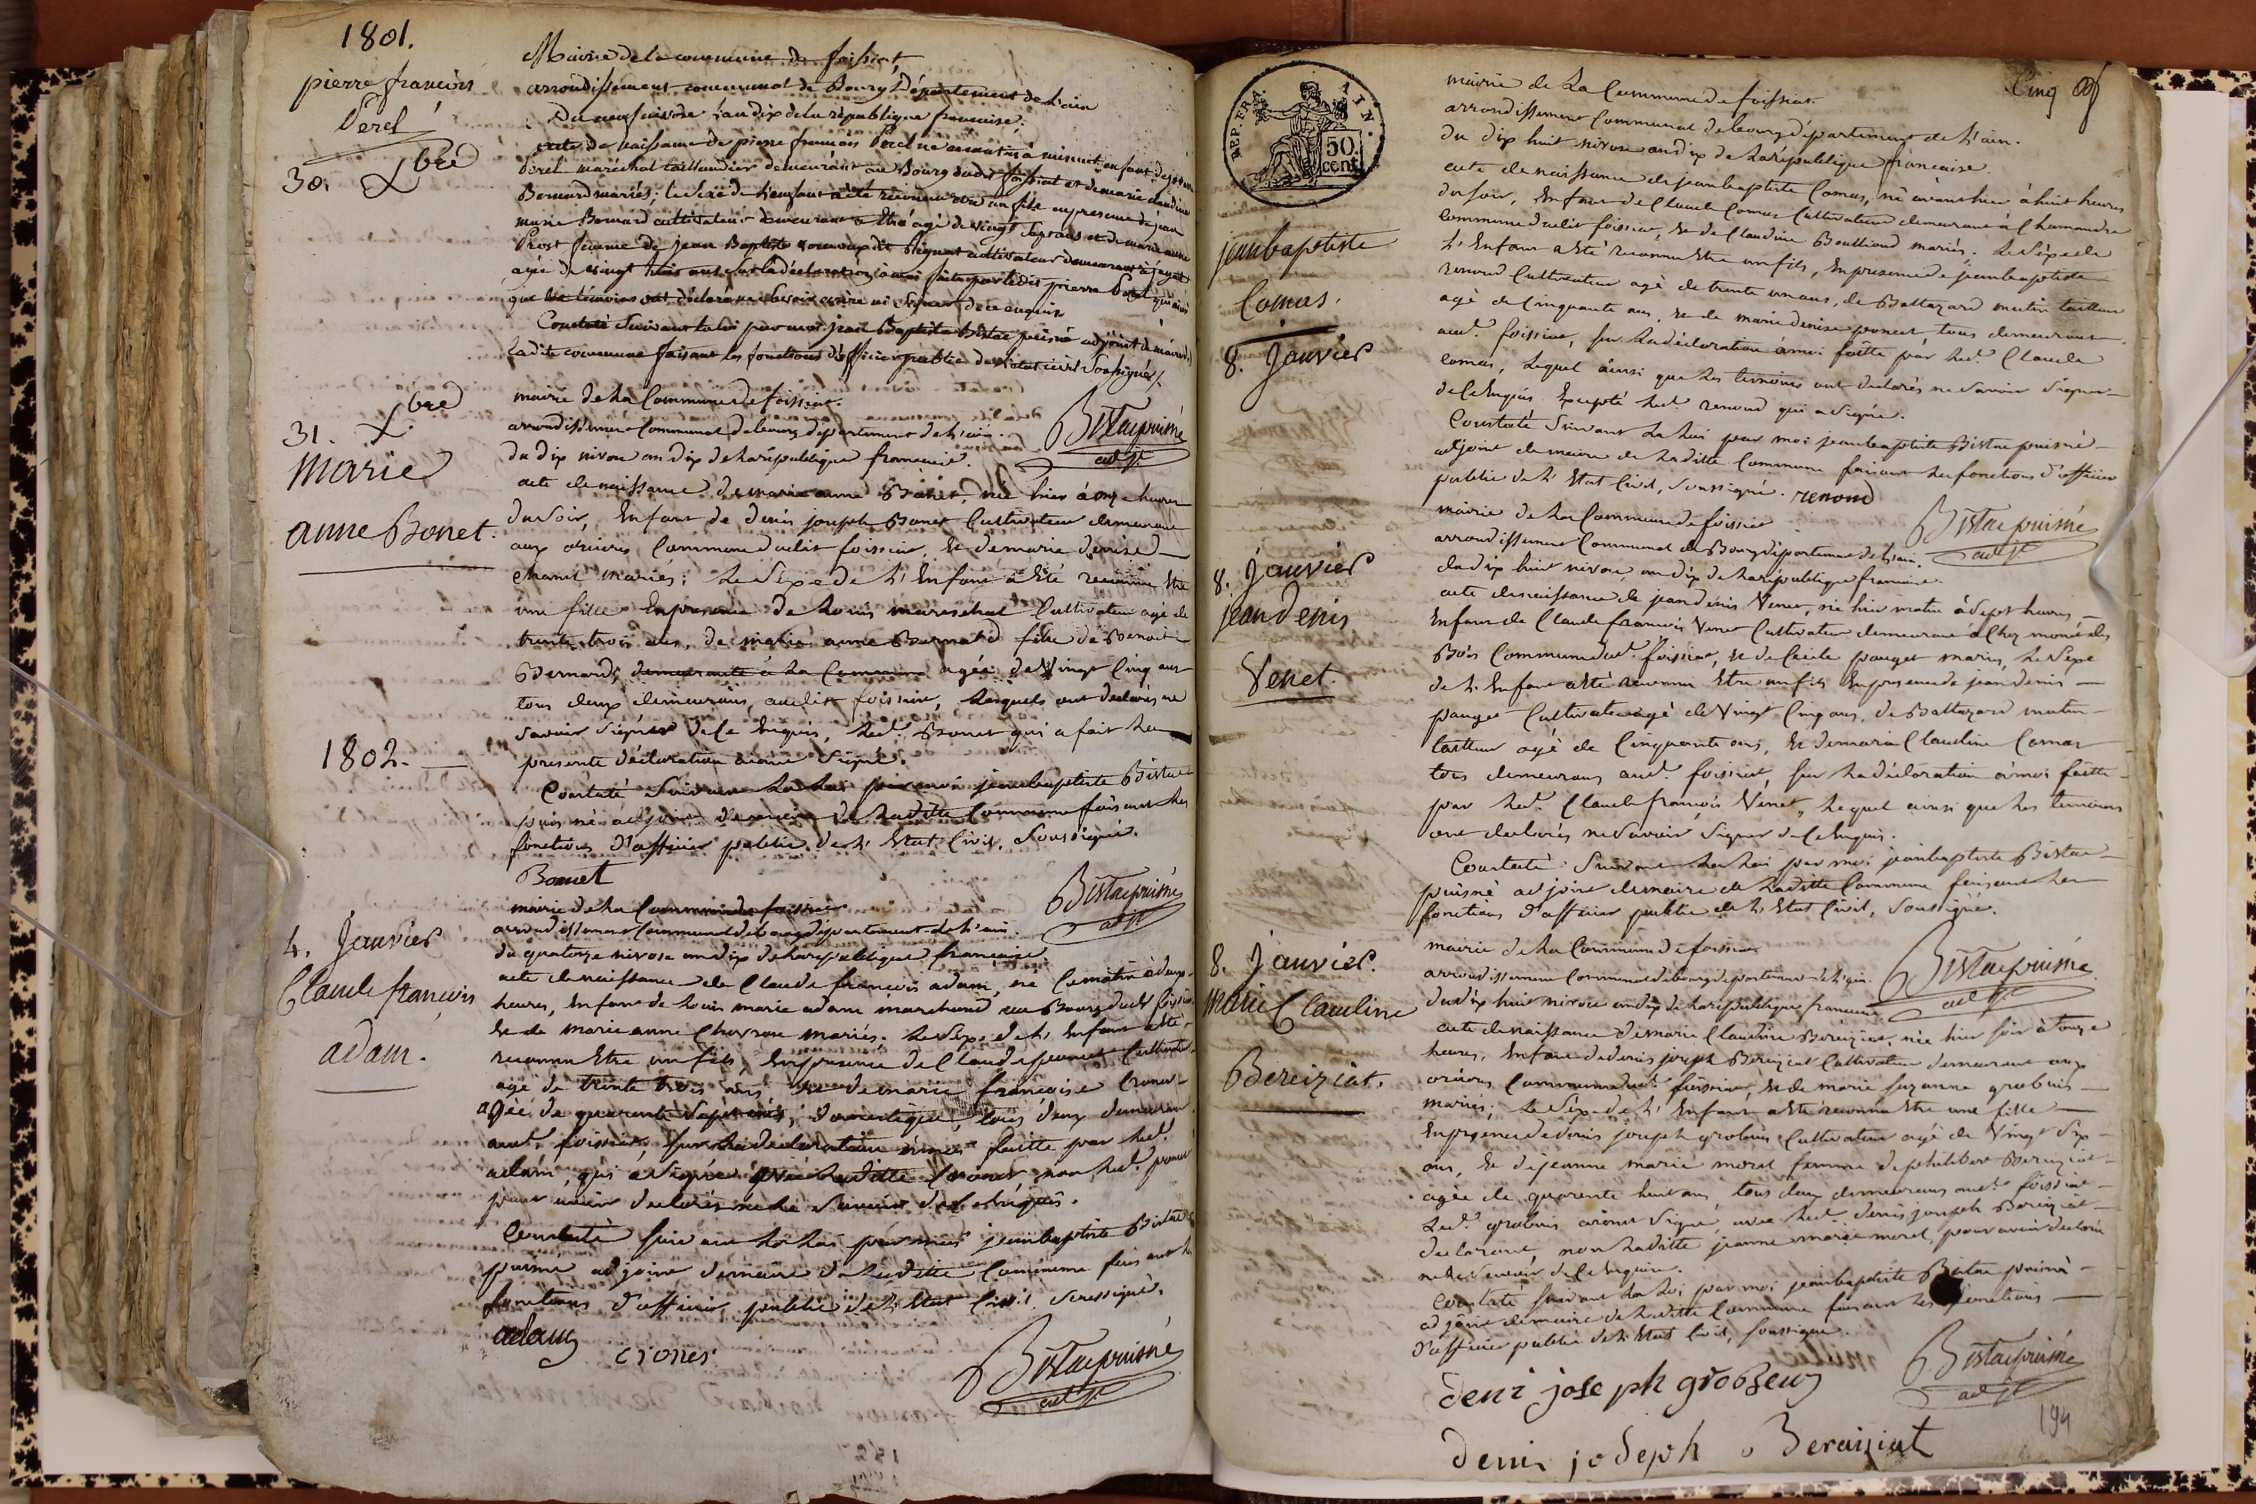 1801.
pierre françois
Perel
30. Xbre
Mairie de la commune de foissiat
arrondissement communal de Bourg Département de L'ain
Du neuf nivose L'an dix de la republique francaise;
acte de naissance de pierre francois Perel né avant à minuit enfant de pierre
Perel marechal taillandier demeurant au Bourg dudit foissiat et de marie claudine
Bernard mariés; le sexe de L'enfant a été reconnu etre un fils en presence de jean
marie Bernard cultivateur demeurant a agé de vingt sept ans et de marie anne
Prost femme de jean Baptiste cultivateur demeurant à jayat
agée de vingt trois ans sur la déclaration à moi faite par ledit pierre Perel qui ainsi
que les témoins ont déclaré ne savoir ecrire ni signer de ce enquis
Constaté Suivant la loi par moi jean Baptiste Bistac puisné adjoint de maire de
Ladite commune faisant les fonctions d'officier public de L'etat civil Soussigné
Bistac puisné
adjt.
31. Xbre
marie
anne Bonet.
mairie de La Commune de foissiat.
arrondissement Communal de bourg département de L'ain.
du dix nivose an dix de La république francaise.
acte de naissance de marie anne Bonet, née hier à onze heures
du soir, Enfant de denis joseph Bonet Cultivateur demeurant
aux orieres Commune dudit foissiat, & de marie denise
mariés; Le Sexe de L'Enfant a Eté reconnu Etre
une fille En presence de Louis mareschal Cultivateur agé de
trente trois ans, de marie anne Bernard fille de Benoit
Bernard, demeurante à La Commune agée de Vingt Cinq ans
tous deux demeurans, audit foissiat, Lesquels ont declarés ne
Savoir Signer de Ce Enquis, Led. Bonet qui a fait La
presente déclaration a Signé.
Constaté Suivant La Loi par moi jeanbaptiste Bistac
puisné adjoint de maire de Laditte Commune faisant Les
fonctions d'officier public de L'Etat Civil, Soussigné.
Bonnet
Bistac puisné
adjt.
1802.
4. Janvier
Claude françois
adam.
mairie de La Commune de foissiat
arrondissement Communal de bourg département de L'ain.
du quatorze nivose an dix de La republique française.
acte de naissance de Claude francois adam, né Ce matin à deux
heures, Enfant de Louis marie adam marchand au Bourg dudt foissiat
& de marie anne mariés. Le Sexe de L'Enfant a Eté
reconnu Etre un fils, En presence de Claude Cultivateur
agé de trente trois ans & de marie françoise Cronet
agée de quarante Sept ans, domestique, tous deux demeurant
audt. foissiat, Sur La declaration à moi faitte par Led.
adam, qui a Signé avec Laditte Cronet, non Led.
pour avoir declaré ne Le Savoir de Ce Enquis.
Constaté Suivant La Loi par moi jeanbaptiste Bistac
puisné adjoint de maire de Laditte Commune faisant les
fonctions d'officier public de L'Etat Civil, Soussigné.
adam
crones
Bistac puisné
adjt.
REP. FRA. AIN.
50
cent
Cinq
jeanbaptiste
Comas.
8. Janvier
mairie de La Commune de foissiat.
arrondissement Communal de bourg département de L'ain.
du dix huit nivose an dix de La république françaice
acte de naissance de jeanbaptiste Comas, né avant hier à huit heures
du soir, Enfant de Claude Comas Cultivateur demeurant à Chamandre
Commune dudit foissiat, & de Claudine Bouilloud mariés; Le Sexe de
L'Enfant a Eté reconnu Etre un fils, En presence de jeanbaptiste
renoud Cultivateur agé de trente un ans, de Baltazard mutin tailleur
agé de Cinquante ans, & de marie denise poncet, tous demeurant
audt. foissiat, Sur La déclaration à moi faitte par Led. Claude
comas, Lequel ainsi que Les temoins ont declarés ne Savoir Signer
de Ce Enquis Excepté Led. renoud qui a Signé.
Constaté Suivant La Loi par moi jeanbaptiste Bistac puisné
adjoint de maire de Laditte Commune faisant Les fonctions d'officier
public de L'Etat Civil, Soussigné. renoud
Bistac puisné
adjt.
8. Janvier
jean denis
Venet.
mairie de La Commune de foissiat
arrondissement Communal de Bourg département de L'ain.
du dix huit nivose an dix de La république francaise.
acte de naissance de jean denis Venet, né hier matin à Sept heures
Enfant de Claude francois Venet Cultivateur demeurant à Chez moné des
Bois Commune dudt. foissiat, & de Cecile pauget mariés, Le Sexe
de L'Enfant a Eté reconnu Etre un fils En presence de jean denis
pauget Cultivateur agé de Vingt Cinq ans, de Baltazard mutin
tailleur agé de Cinquante ans, & de marie Claudine Comas
tous demeurans audt. foissiat, Sur La déclaration à moi faitte
par Led. Claude françois Venet, Lequel ainsi que Les temoins
ont declarés ne Savoir Signer de Ce Enquis.
Constaté Suivant La Loi par moi jeanbaptiste Bistac
puisné adjoint de maire de Laditte Commune faisant Les
fonctions d'officier public de L'Etat Civil, Soussigné.
Bistac puisné
adjt.
8. Janvier.
marie Claudine
Bereiziat.
mairie de La Commune de foissiat
arrondissement Communal de bourg departement de L'ain.
du dix huit nivose an dix de La republique francaise
acte de naissance de marie Claudine Béreiziat, née hier soir à onze
heures, Enfant de denis joseph Béreiziat Cultivateur demeurant aux
orieres Commune dudt. foissiat, & de marie Suzanne grobuis
mariés; Le Sexe de L'Enfant a Eté reconnu Etre une fille
En presence de denis joseph grobuis Cultivateur agé de Vingt Six
ans, & de jeanne marie morel femme de philibert Béreiziat
agée de quarente huit ans, tous deux demeurans audt. foissiat
Led. grobuis a Signé avec Led. denis joseph Béreiziat
declarant, non Laditte jeanne marie morel, pour avoir declaré
ne Le Savoir de Ce Enquise.
Constaté Suivant La Loi par moi jeanbaptiste Bistac puisné
adjoint de maire de Laditte Commune faisant Les fonctions
d'officier public de L'Etat Civil, Soussigné.
Bistac puisné
adjt.
deni joseph grobeuy
deni joseph Beraiziat
194